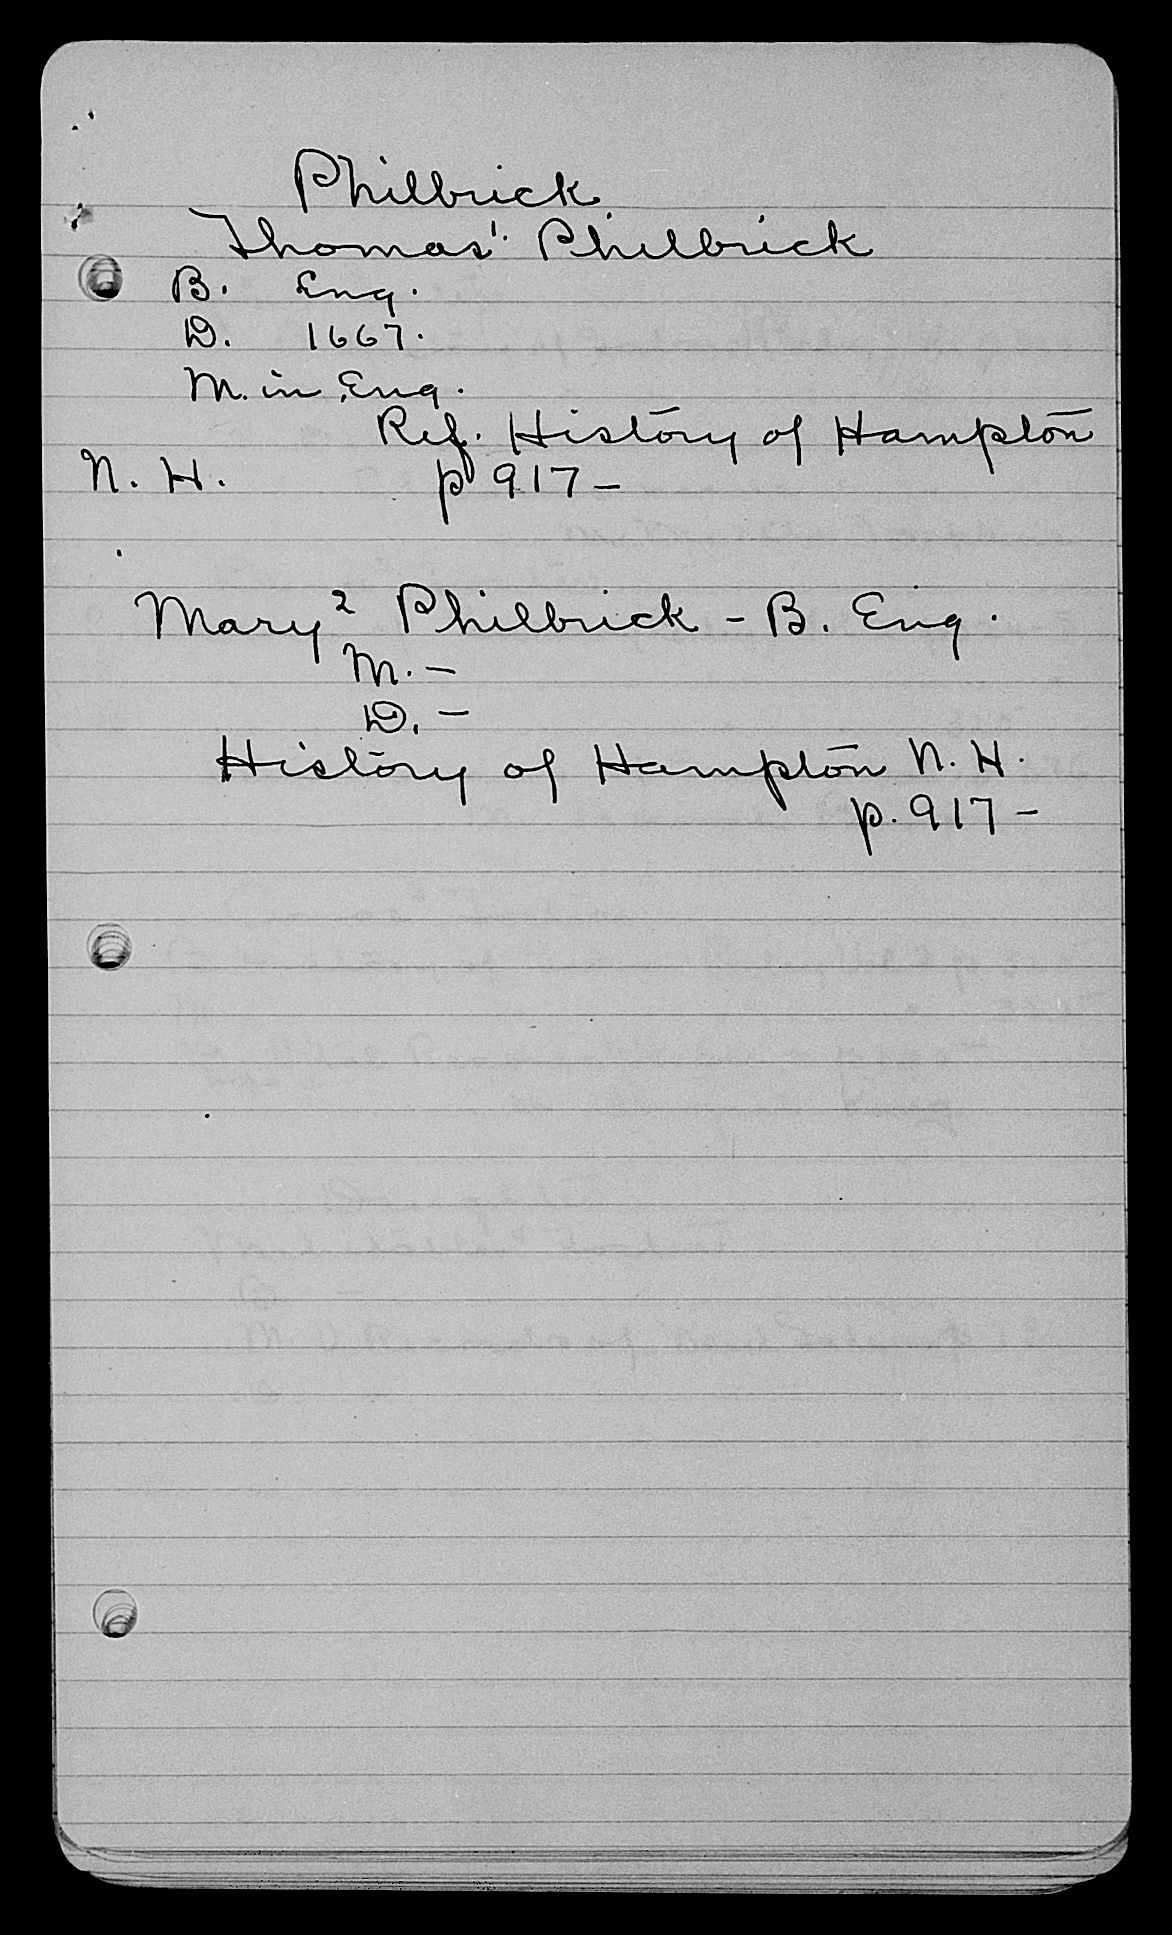 Philbrick
Thomas¹. Philbrick
B. Eng.
D. 1667.
M. in Eng.
Ref. History of Hampton
N. H. p 917 –
Mary² Philbrick – B. Eng.
M. –
D. –
History of Hampton N. H.
p. 917 –